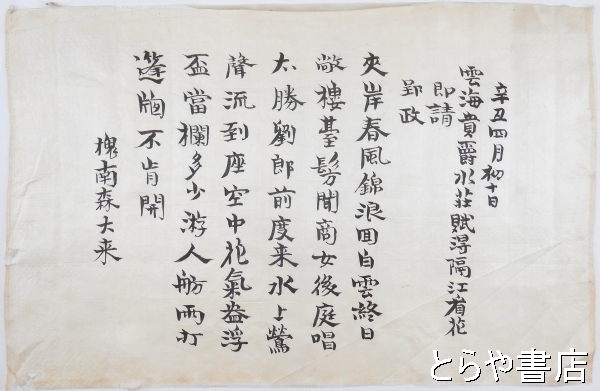 辛丑四月初十日
雲海貴爵水莊賦得隔江看花
即請
郢政
夾岸春風錦浪囬白雲終日
敞樓臺髣聞商女後庭唱
太勝劉郎前度来水上鶯
聲流到座空中花氣盎浮
盃當欄多少游人舫雨打
篷牕不肯開
槐南森大来
とらや書店